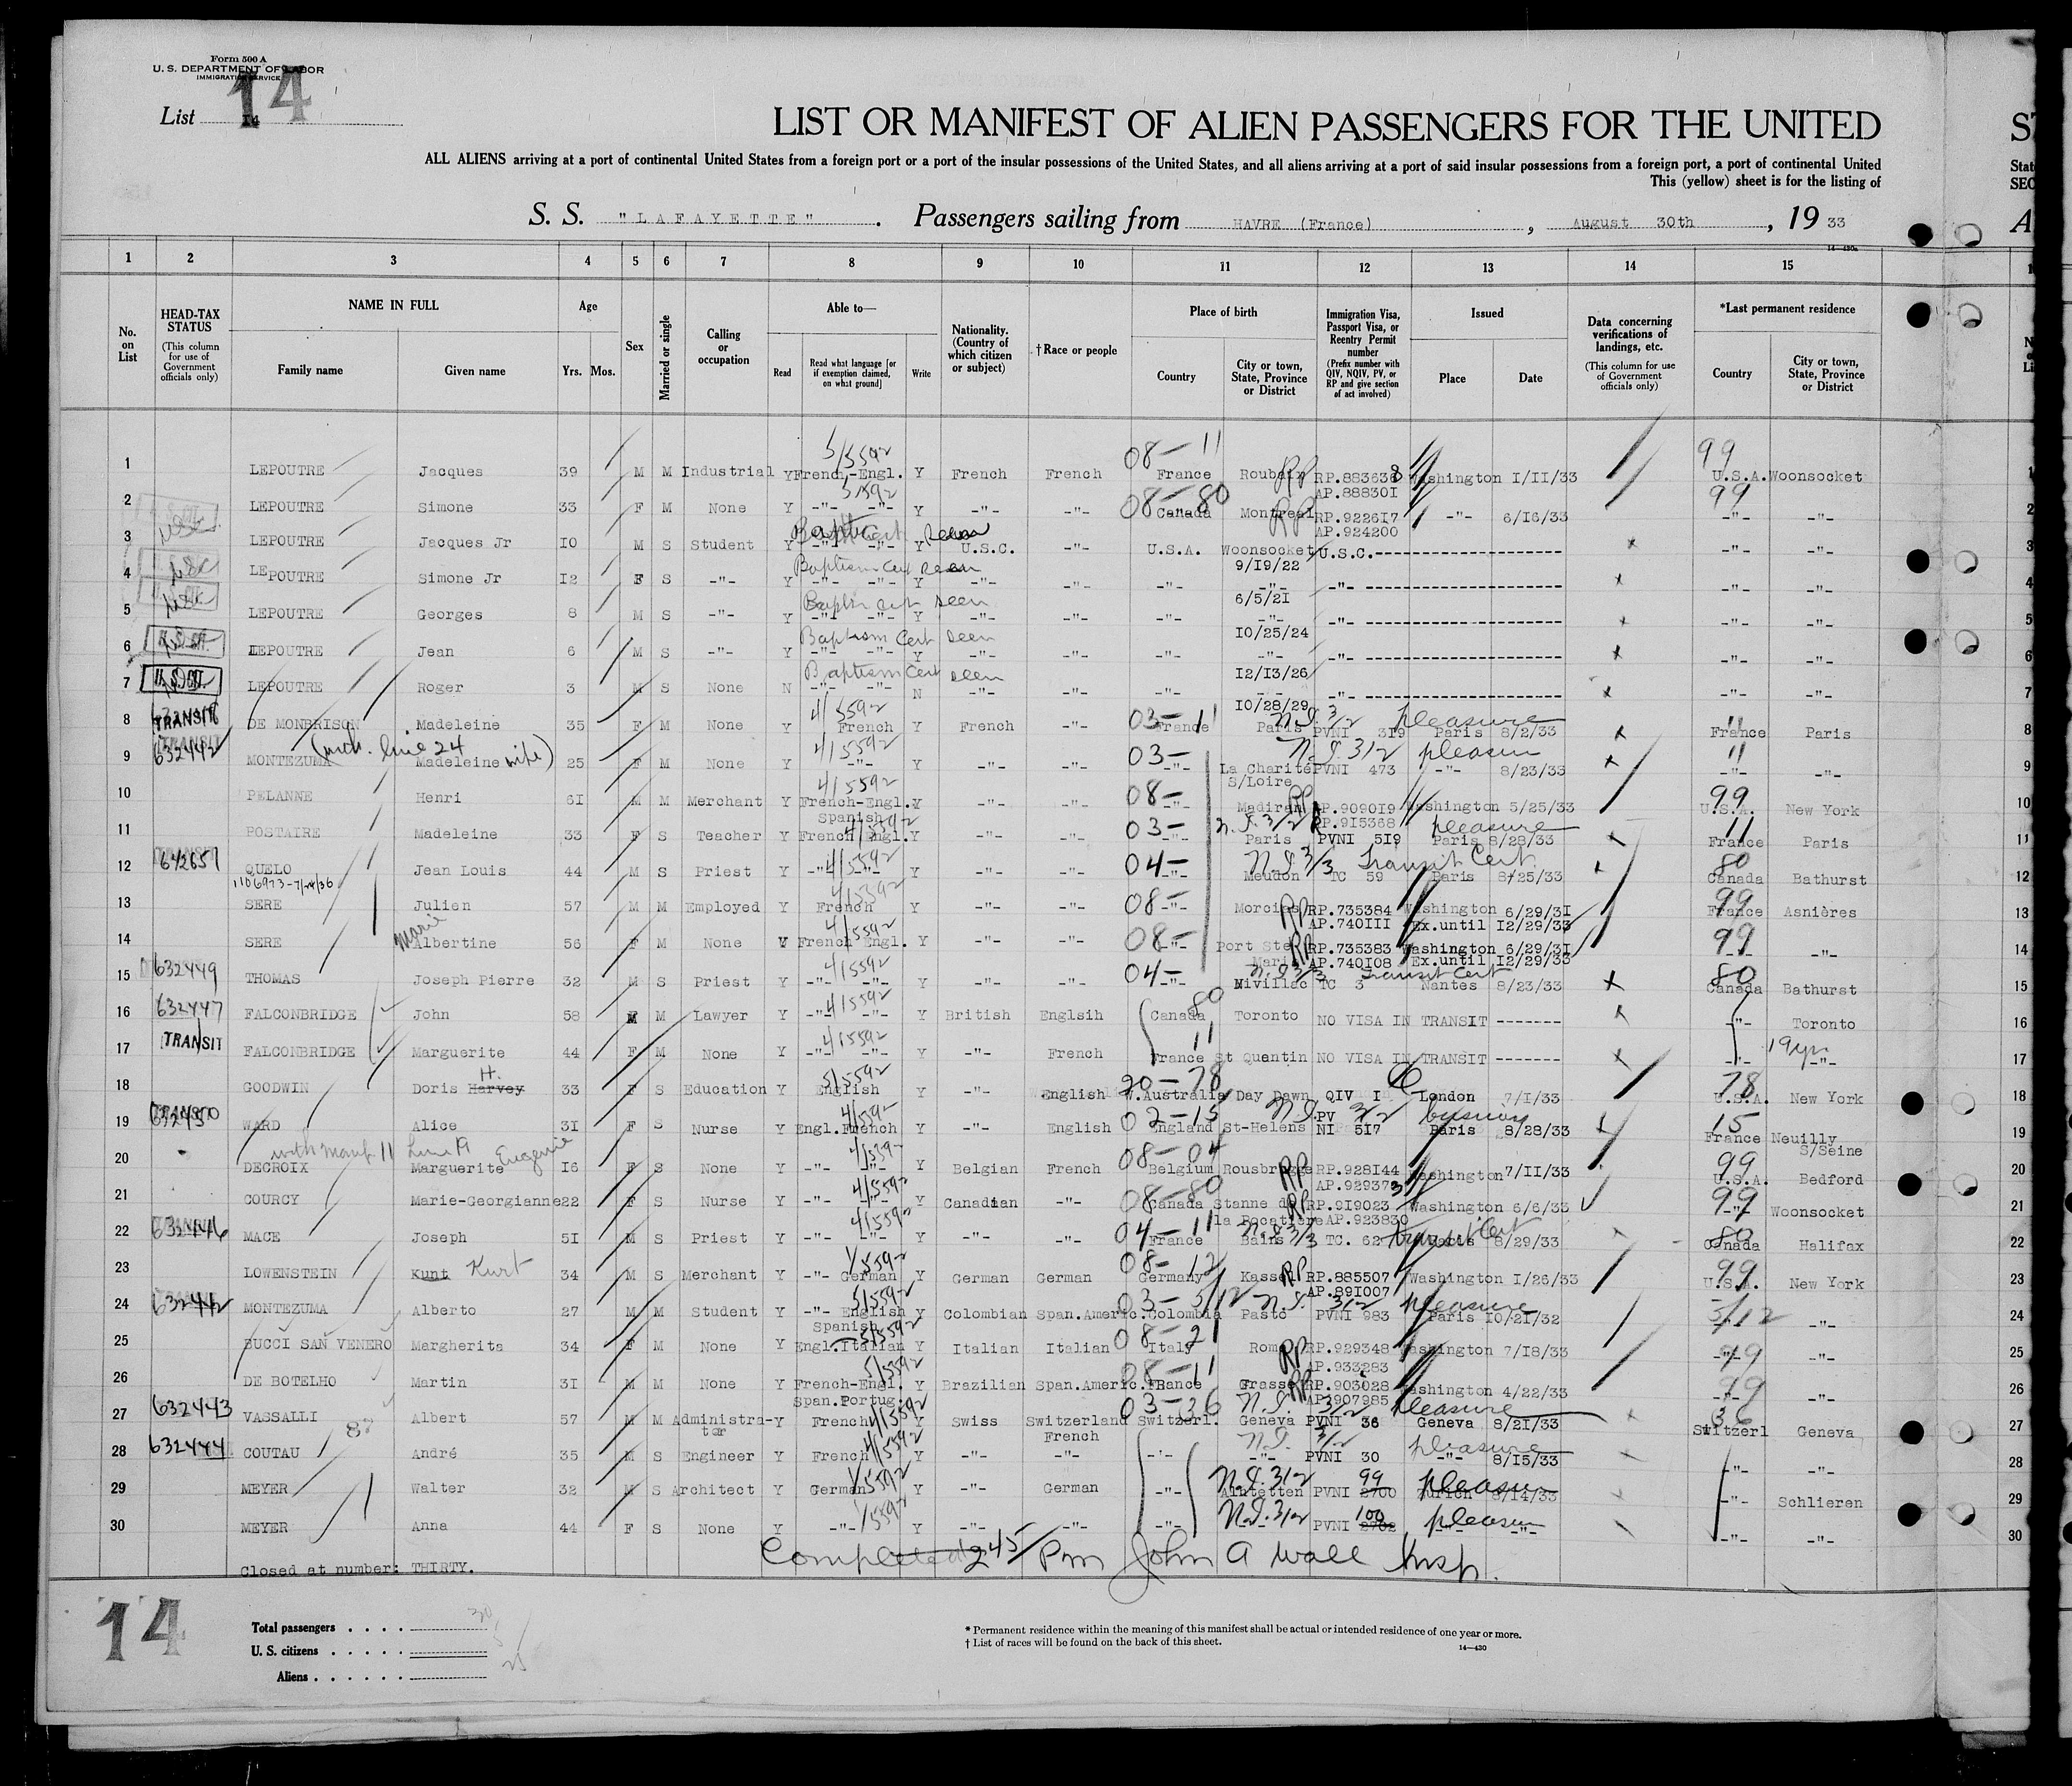 Form 500 A
U. S. DEPARTMENT OF LABOR
IMMIGRATION SERVICE
List 14
14
LIST OR MANIFEST OF ALIEN PASSENGERS FOR THE UNITED
ALL ALIENS arriving at a port of continental United States from a foreign port or a port of the insular possessions of the United States, and all aliens arriving at a port of said insular possessions from a foreign port, a port of continental United
This (yellow) sheet is for the listing of
S. S. "LAFAYETTE". Passengers sailing from HAVRE (France), August 30th, 19 33
14—430a
1 2 3 4 5 6 7 8 9 10 11 12 13 14 15
No. on List
HEAD-TAX STATUS (This column for use of Government officials only)
NAME IN FULL Family name Given name
Age Yrs. Mos.
Sex
Married or single
Calling or occupation
Able to— Read Read what language [or if exemption claimed, on what ground] Write
Nationality. (Country of which citizen or subject)
†Race or people
Place of birth Country City or town, State, Province or District
Immigration Visa, Passport Visa, or Reentry Permit number (Prefix number with QIV, NQIV, PV, or RP and give section of act involved)
Issued Place Date
Data concerning verifications of landings, etc. (This column for use of Government officials only)
*Last permanent residence Country City or town, State, Province or District
1 LEPOUTRE Jacques 39 M M Industrial Y French-Engl. Y French French 08-11 France Roubaix RP RP.883638 Washington I/11/33 99 U.S.A. Woonsocket
AP.88830I
2 LEPOUTRE Simone 33 F M None Y -"- -"- Y -"- -"- 08-80 Canada Montreal RP RP.9226I7 -"- 6/I6/33 99 -"- -"-
AP.924200
3 LEPOUTRE Jacques Jr IO M S Student Y -"- -"- Y U.S.C. -"- U.S.A. Woonsocket U.S.C. x -"- -"-
9/I9/22
4 LEPOUTRE Simone Jr I2 F S -"- Y Baptism Cert seen -"- -"- Y -"- -"- -"- -"- -"- x -"- -"-
6/5/2I
5 LEPOUTRE Georges 8 M S -"- Y -"- -"- Y seen -"- -"- -"- -"- -"- x -"- -"-
IO/25/24
6 LEPOUTRE Jean 6 M S -"- Y Baptism Cert seen -"- -"- Y -"- -"- -"- -"- x -"- -"-
I2/I3/26
7 U.S. CIT. LEPOUTRE Roger 3 M S None N Baptism Cert seen -"- -"- N -"- -"- -"- -"- -"- x -"- -"-
IO/28/29
8 TRANSIT DE MONBRISON Madeleine 35 F M None Y 4/5592 French Y French -"- 03-11 France Paris PVNI 3I9 pleasure Paris 8/2/33 x 11 France Paris
9 632442 MONTEZUMA (mch. line 24 wife) Madeleine 25 F M None Y 4/5592 -"- Y -"- -"- 03- -"- La Charité S/Loire PVNI 473 -"- 8/23/33 x 11 -"- -"-
10 PELANNE Henri 6I M M Merchant Y 4/5592 French-Engl. Spanish Y -"- -"- 08- -"- Madiran RP RP.9090I9 Washington 5/25/33 99 U.S.A. New York
AP.9I5368
11 POSTAIRE Madeleine 33 F S Teacher Y French Engl. Y -"- -"- 03- -"- Paris PVNI 5I9 pleasure Paris 8/28/33 x 11 France Paris
12 642657 QUELO Jean Louis 44 M S Priest Y -"- -"- Y -"- -"- 04- -"- Meudon TC 59 Transit Cert. Paris 8/25/33 80 Canada Bathurst
1106973-7/24/36
13 SERE Julien 57 M M Employed Y French Y -"- -"- 08- -"- RP RP.735384 Washington 6/29/3I 99 France Asnières
AP.740III Ex.until I2/29/33
14 SERE Marie Albertine 56 F M None Y French Engl. Y -"- -"- 08- -"- Port Ste Marie RP RP.735383 Washington 6/29/3I 99 -"-
AP.740I08 Ex.until I2/29/33
15 632449 THOMAS Joseph Pierre 32 M S Priest Y 4/5592 -"- -"- Y -"- -"- 04- -"- Nivillac TC 3 Transit Cert Nantes 8/23/33 x 80 Canada Bathurst
16 632447 FALCONBRIDGE John 58 M M Lawyer Y 4/5592 -"- -"- Y British Englsih 80 Canada Toronto NO VISA IN TRANSIT x -"- Toronto
17 TRANSIT FALCONBRIDGE Marguerite 44 F M None Y 4/5592 -"- -"- Y -"- French 11 France St Quentin NO VISA IN TRANSIT x -"- 19yr -"-
18 GOODWIN Doris H. Harvey 33 F S Education Y 5/5592 English Y -"- English 20-78 W.Australia Day Dawn QIV I London 7/I/33 78 U.S.A. New York
19 WARD Alice 3I F S Nurse Y Engl.French Y -"- English 02-15 England St-Helens PV NI 5I7 Paris 8/28/33 x 15 France Neuilly S/Seine
20 DECROIX Marguerite Eugenie I6 F S None Y -"- -"- Y Belgian French 08-04 Belgium Rousbrugge RP RP.928I44 Washington 7/II/33 99 U.S.A. Bedford
AP.929373
21 COURCY Marie-Georgianne 22 F S Nurse Y -"- -"- Y Canadian -"- 08-80 Canada Stanne de la Pocatiere RP RP.9I9023 Washington 6/6/33 99 -"- Woonsocket
AP.923830
22 632446 MACE Joseph 5I M S Priest Y -"- -"- Y -"- -"- 04-11 France Bains TC. 62 Transit Cert Paris 8/29/33 80 Canada Halifax
23 LOWENSTEIN Kunt Kurt 34 M S Merchant Y -"- German Y German German 08-12 Germany Kassel RP RP.885507 Washington I/26/33 99 U.S.A. New York
AP.89I007
24 63244 MONTEZUMA Alberto 27 M M Student Y -"- English Spanish Y Colombian Span.Americ. 03-5/12 Colombia Pasto PVNI 983 pleasure Paris IO/2I/32 5/12 -"- -"-
25 BUCCI SAN VENERO Margherita 34 F M None Y Engl.Italian Y Italian Italian 08-21 Italy Rome RP RP.929348 Washington 7/I8/33 99 -"- -"-
AP.933283
26 DE BOTELHO Martin 3I M M None Y French-Engl. Span.Portug. Y Brazilian Span.Americ. 08-11 France Grasse RP RP.903028 Washington 4/22/33 99 -"- -"-
AP907985
27 632443 VASSALLI Albert 57 M M Administrator Y French Y Swiss Switzerland French 03-36 Switzerl. Geneva PVNI 36 pleasure Geneva 8/2I/33 36 Switzerl Geneva
28 632444 COUTAU André 35 M S Engineer Y French Y -"- -"- -"- -"- PVNI 30 pleasure -"- 8/I5/33 -"- -"-
29 MEYER Walter 32 M S Architect Y German Y -"- German -"- N.I.312 PVNI 99 2700 pleasure Zurich 8/I4/33 -"- Schlieren
30 MEYER Anna 44 F S None Y -"- Y -"- -"- -"- N.I.312 -"- PVNI 100 2702 pleasure -"- -"- -"- -"-
Closed at number: THIRTY.
Completed 245/Pm John A Wall Insp.
14
Total passengers 30
U. S. citizens 5
Aliens 25
* Permanent residence within the meaning of this manifest shall be actual or intended residence of one year or more.
† List of races will be found on the back of this sheet.
14—430